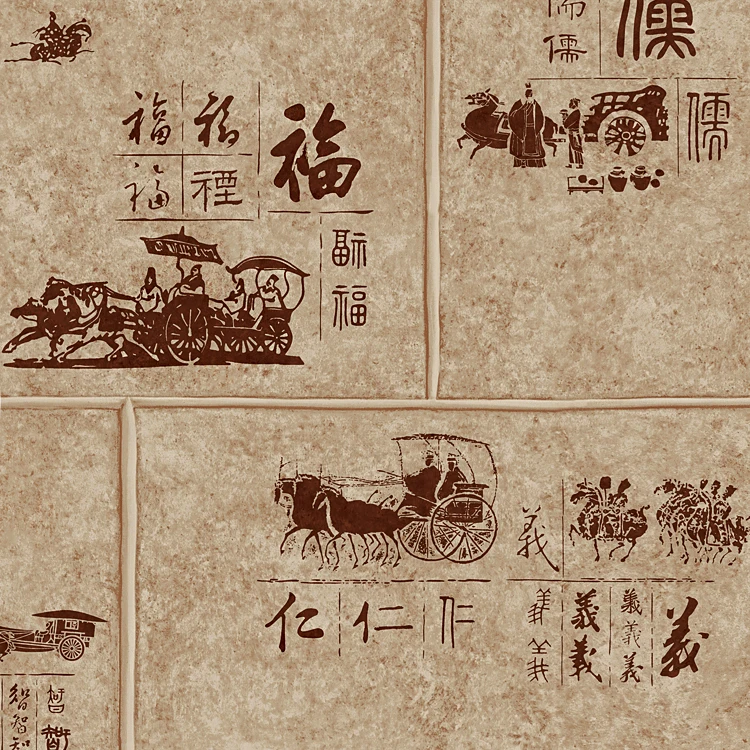 福 福 福
福 禋
福
福
儒 儒
儒 儒
義
仁 仁 仁
義 義 義 義
義 義 義
義
智 智
智 智
智